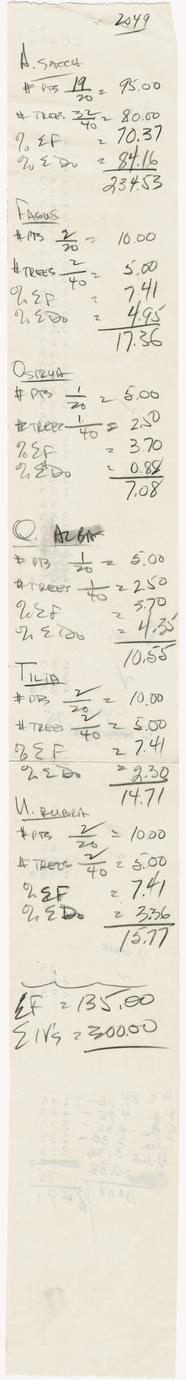 2049
A. SACCH
# PTS 19/20 = 95.00
# TREES 32/40 = 80.00
% ΣF = 70.37
% ΣDo = 84.16
234.53
FAGUS
# PTS 2/20 = 10.00
# TREES 2/40 = 5.00
% ΣF = 7.41
% ΣDo = 4.95
17.36
OSTRYA
# PTS 1/20 = 5.00
# TREES 1/40 = 2.50
% ΣF = 3.70
% ΣDo = 0.88
7.08
Q. ALBA
# PTS 1/20 = 5.00
# TREES 1/40 = 2.50
% ΣF = 3.70
% ΣDo = 4.35
10.55
TILIA
# PTS 2/20 = 10.00
# TREES 2/40 = 5.00
% ΣF = 7.41
% ΣDo = 2.30
14.71
U. RUBRA
# PTS 2/20 = 10.00
# TREES 2/40 = 5.00
% ΣF = 7.41
% ΣDo = 3.36
15.77
ΣF = 135.00
ΣIV's = 300.00